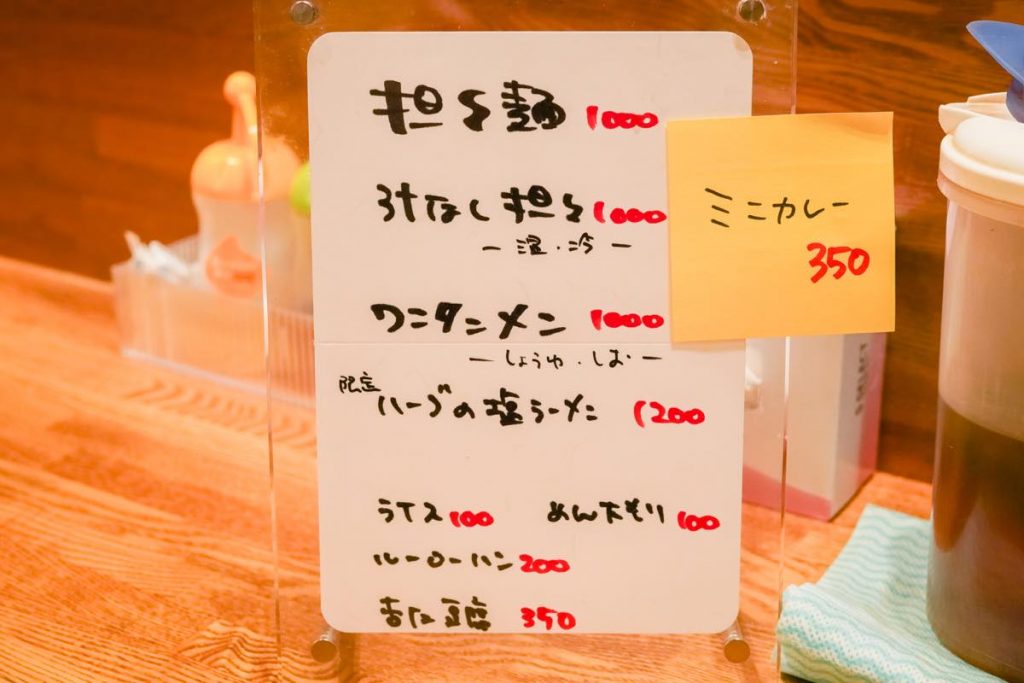 担々麺 1000
汁なし担々 1000
ー 温・冷 ー
ワンタンメン 1000
ー しょうゆ・しお ー
限定 ハーブの塩ラーメン 1200
ライス 100 めん大もり 100
ルーローハン 200
杏仁豆腐 350
ミニカレー
350